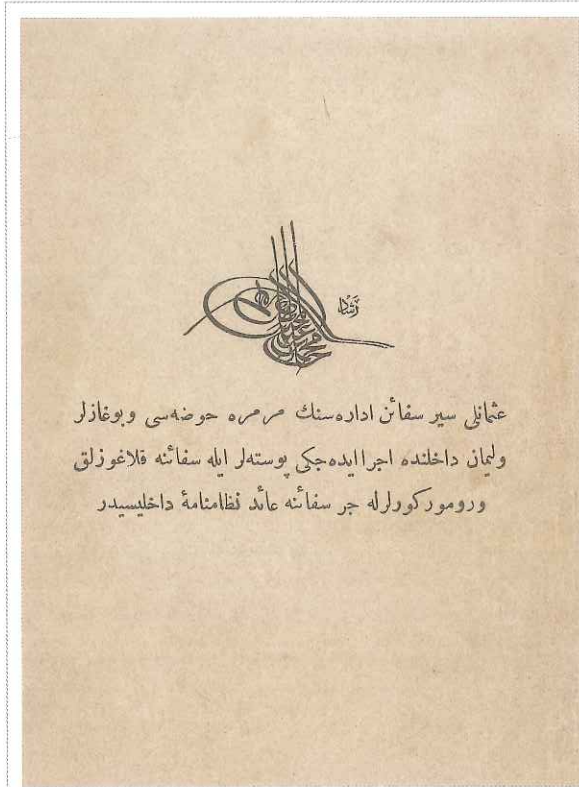 رشاد
عثمانلی سیر سفائن اداره‌سنك مرمره حوضه‌سی وبوغازلر
ولیمان داخلنده اجرا ایده‌جكی پوسته‌لر ایله سفائنه قلاغوزلق
وروموركورلرله جر سفائنه عائد نظامنامهٔ داخلیسیدر